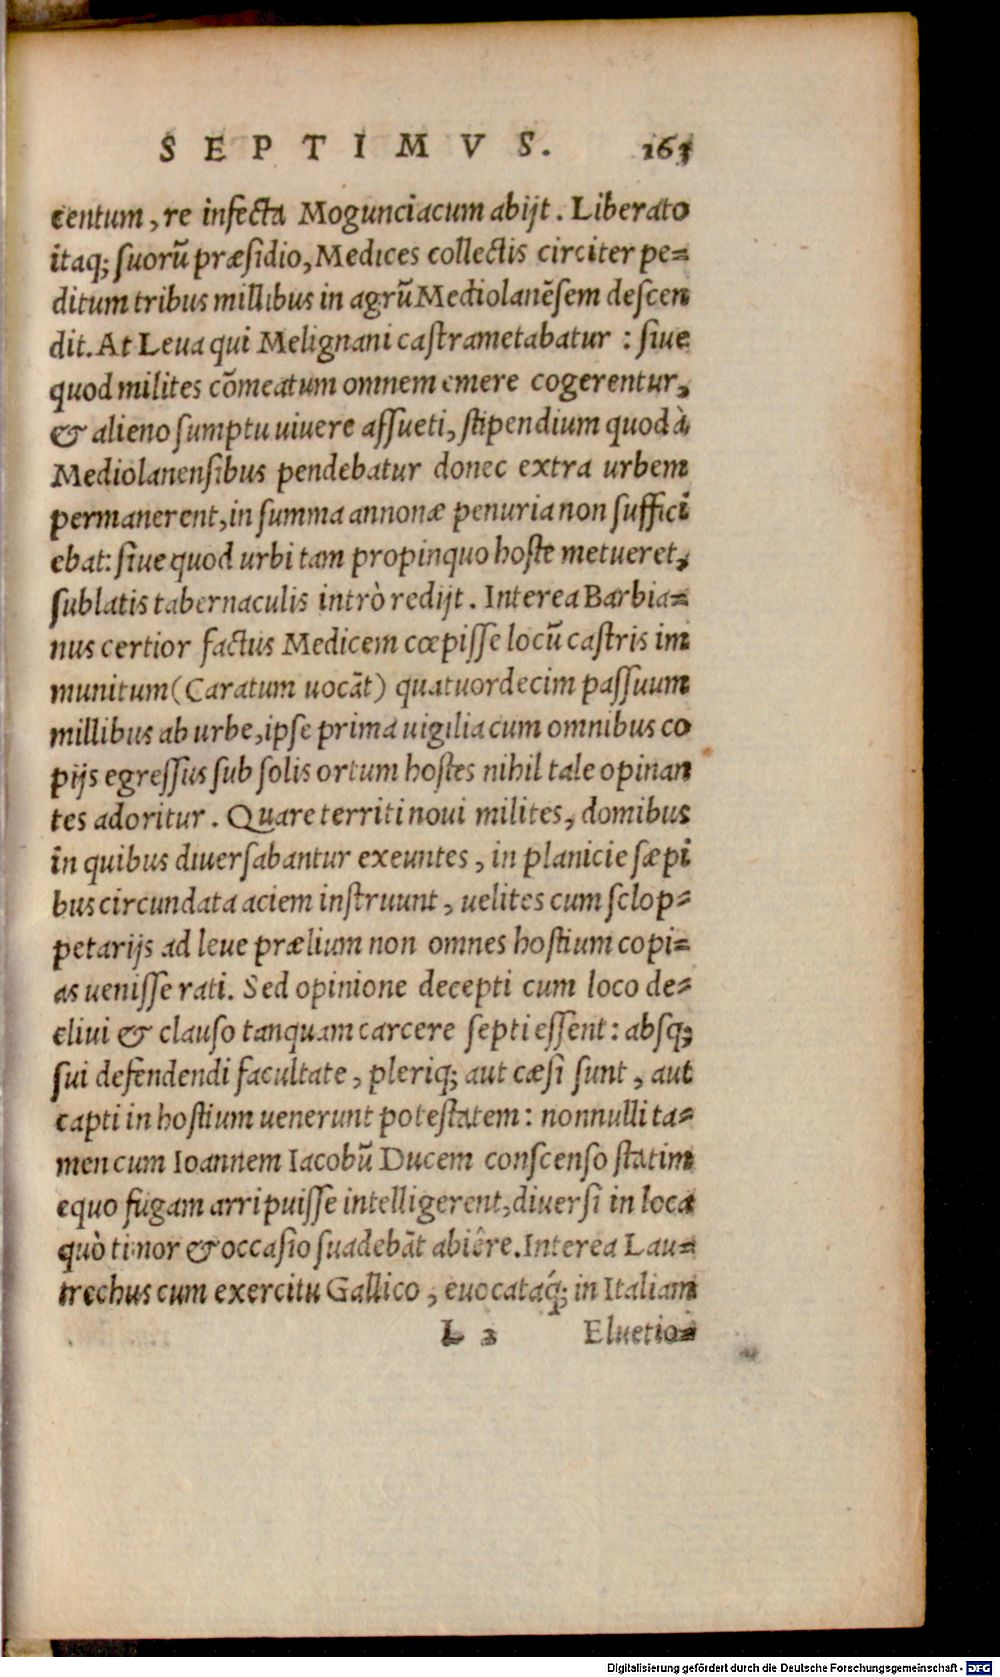 SEPTIMVS. 165
centum, re infecta Mogunciacum abijt. Liberato
itaq; suorũ præsidio, Medices collectis circiter pe=
ditum tribus millibus in agrũ Mediolanẽsem descen
dit. At Leua qui Melignani castrametabatur : siue
quod milites cõmeatum omnem emere cogerentur,
& alieno sumptu uiuere assueti, stipendium quod à
Mediolanensibus pendebatur donec extra urbem
permanerent, in summa annonæ penuria non suffici
ebat: siue quod urbi tam propinquo hoste metueret,
sublatis tabernaculis intrò redijt. Interea Barbia=
nus certior factus Medicem cœpisse locũ castris im
munitum (Caratum uocãt) quatuordecim passuum
millibus ab urbe, ipse prima uigilia cum omnibus co
pijs egressus sub solis ortum hostes nihil tale opinan
tes adoritur. Quare territi noui milites, domibus
in quibus diuersabantur exeuntes, in planicie sæpi
bus circundata aciem instruunt, uelites cum sclop=
petarijs ad leue prælium non omnes hostium copi=
as uenisse rati. Sed opinione decepti cum loco de=
cliui & clauso tanquam carcere septi essent: absq;
sui defendendi facultate, pleriq; aut cæsi sunt, aut
capti in hostium uenerunt potestatem: nonnulli ta=
men cum Ioannem Iacobũ Ducem conscenso statim
equo fugam arripuisse intelligerent, diuersi in loca
quò timor & occasio suadebãt abiêre. Interea Lau=
trechus cum exercitu Gallico, euocataq́; in Italiam
L 3 Eluetio=
Digitalisierung gefördert durch die Deutsche Forschungsgemeinschaft - DFG